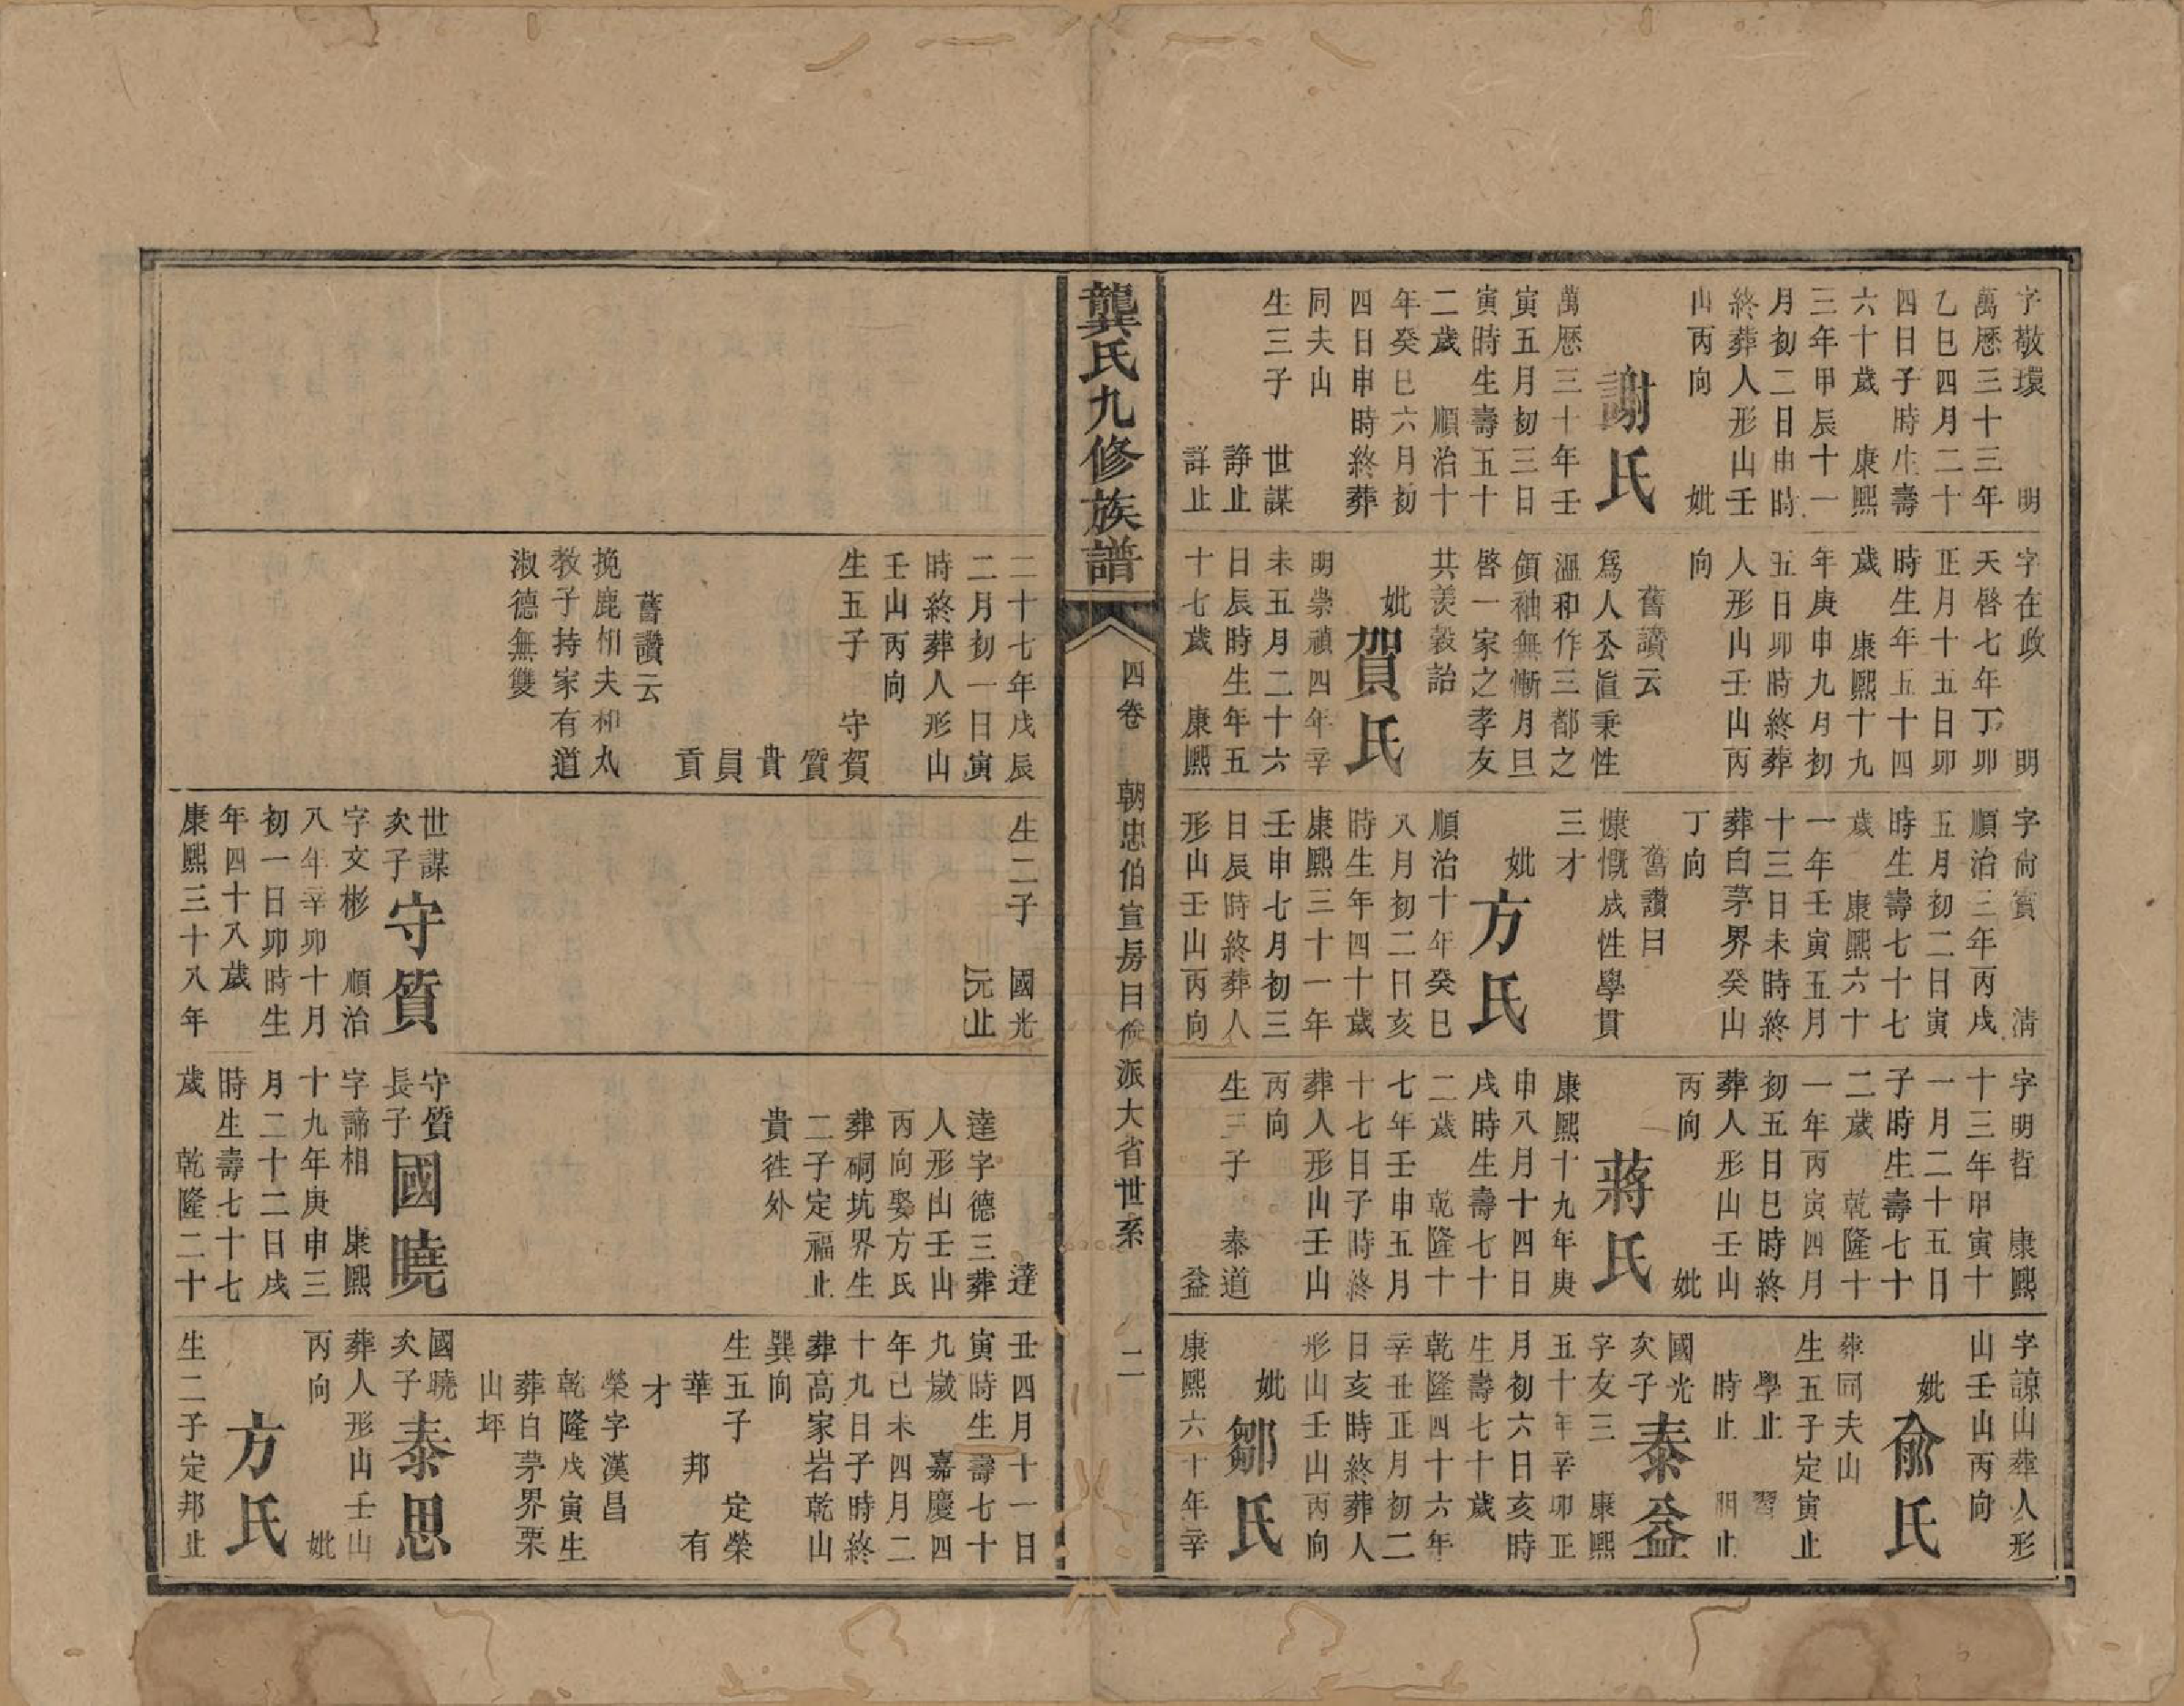 字敬環　明
萬歷三十三年
乙巳四月二十
四日子時生壽
六十歲　康熙
三年甲辰十一
月初二日申時
終葬人形山壬
山丙向　妣
謝氏
萬歷三十年壬
寅五月初三日
寅時生壽五十
二歲　順治十
年癸巳六月初
四日申時終葬
同夫山
生三子　世謀
諍止
詳止
字在政　明
天啓七年丁卯
正月十五日卯
時生年五十四
歲　康熙十九
年庚申九月初
五日卯時終葬
人形山壬山丙
向
舊讚云
爲人公直秉性
溫和作三都之
領袖無慚月旦
啓一家之孝友
共羡穀詒
妣
賀氏
明崇禎四年辛
未五月二十六
日辰時生年五
十七歲　康熙
字尙賓　淸
順治三年丙戌
五月初二日寅
時生壽七十七
歲　康熙六十
一年壬寅五月
十三日未時終
葬白茅界癸山
丁向
舊讚曰
慷慨成性學貫
三才
妣
方氏
順治十年癸巳
八月初二日亥
時生年四十歲
康熙三十一年
壬申七月初三
日辰時終葬人
形山壬山丙向
字明哲　康熙
十三年甲寅十
一月二十五日
子時生壽七十
二歲　乾隆十
一年丙寅四月
初五日巳時終
葬人形山壬山
丙向　妣
蔣氏
康熙十九年庚
申八月十四日
戌時生壽七十
二歲　乾隆十
七年壬申五月
十七日子時終
葬人形山壬山
丙向
生三子　泰道
益
字諒山葬人形
山壬山丙向
妣
俞氏
葬同夫山
生五子定寅止
學止　習
時止　明止
國光
次子
泰益
字友三　康熙
五十年辛卯正
月初六日亥時
生壽七十歲
乾隆四十六年
辛丑正月初二
日亥時終葬人
形山壬山丙向
妣
鄒氏
康熙六十年辛
龔氏九修族譜
四卷　朝忠伯宣房日儉派大省世系　二
二十七年戊辰
二月初一日寅
時終葬人形山
壬山丙向
生五子　守賀
質
貴
員
貢
舊讚云
挽鹿相夫和丸
教子持家有道
淑德無雙
生二子　國光
元止
世謀
次子
守質
字文彬　順治
八年辛卯十月
初一日卯時生
年四十八歲
康熙三十八年
達
達字德三葬
人形山壬山
丙向娶方氏
葬硐坑界生
二子定福止
貴徃外
守質
長子
國曉
字諦相　康熙
十九年庚申三
月二十二日戌
時生壽七十七
歲　乾隆二十
丑四月十一日
寅時生壽七十
九歲　嘉慶四
年己未四月二
十九日子時終
葬高家岩乾山
巽向
生五子　定榮
華　邦　有
才
榮字漢昌
乾隆戊寅生
葬白茅界栗
山坪
國曉
次子
泰思
葬人形山壬山
丙向　妣
方氏
生二子定邦止